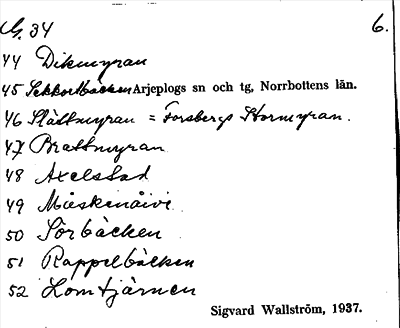 G. 34 6.
44 Dikmyran
45 Sekkotbäcken Arjeplogs sn och tg, Norrbottens län.
46 Slåttmyran = Forsbergs Stormyran.
47 Brattmyran
48 Axelstad
49 Måskenåive
50 Sörbäcken
51 Rappelbäcken
52 Lomtjärnen
Sigvard Wallström, 1937.